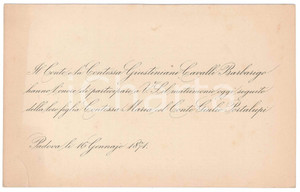 Il Conte e la Contessa Giustiniano Cavalli Barbarigo
hanno l'onore di partecipare a V.S. il matrimonio oggi seguito
della loro figlia Contessa Maria col Conte Giulio Portalupi
Padova, li 16 Gennajo 1871.